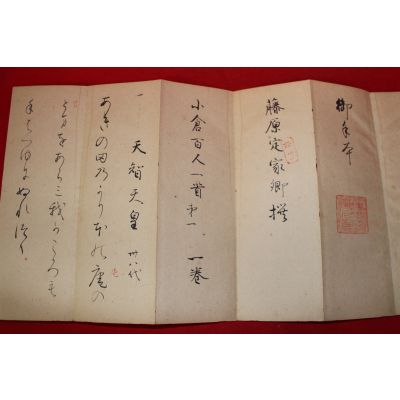 御手本
藤原定家卿撰
小倉百人一首 第一 一巻
一 天智天皇 卅八代
あきの田のかりほの庵の
とまをあらみ我がころも
手はつゆにぬれつゝ